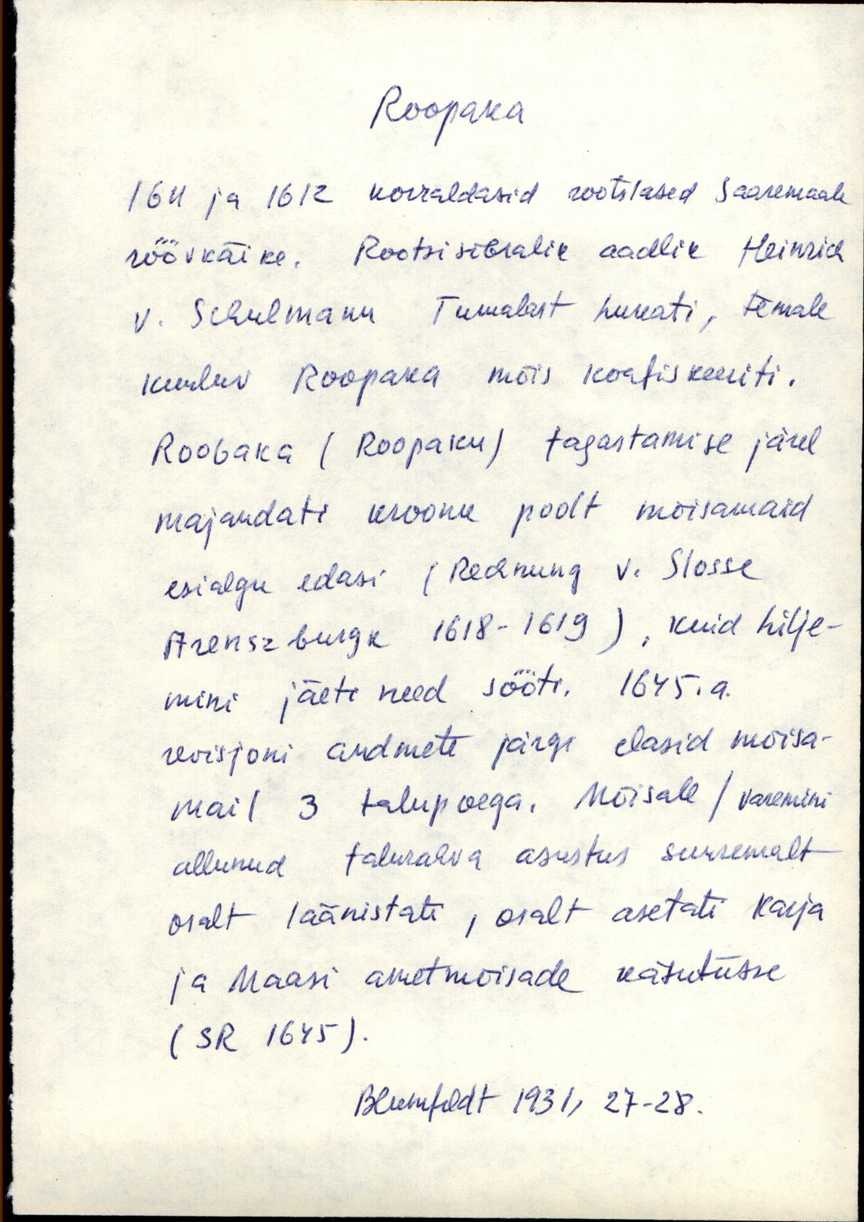 Roopaka
1611 ja 1612 korraldasid rootslased Saaremaale
röövkäike. Rootsisõbralik aadlik Heinrich
v. Schulmann Tumalast hukati, temale
kuuluv Roopaka mõis konfiskeeriti.
Roobaka (Roopaku) tagastamise järel
majandati kroonu poolt mõisamaid
esialgu edasi (Rechnung v. Slosse
Arenszburgk 1618-1619), kuid hilje-
mini jäeti need sööti. 1645.a.
revisjoni andmete järgi elasid mõisa-
mail 3 talupoega. Mõisale / varemini
allunud talurahva asustus suuremalt
osalt läänistati, osalt asetati Karja
ja Maasi ametmõisade käsutusse
(SR 1645).
Blumfeldt 1931, 27-28.